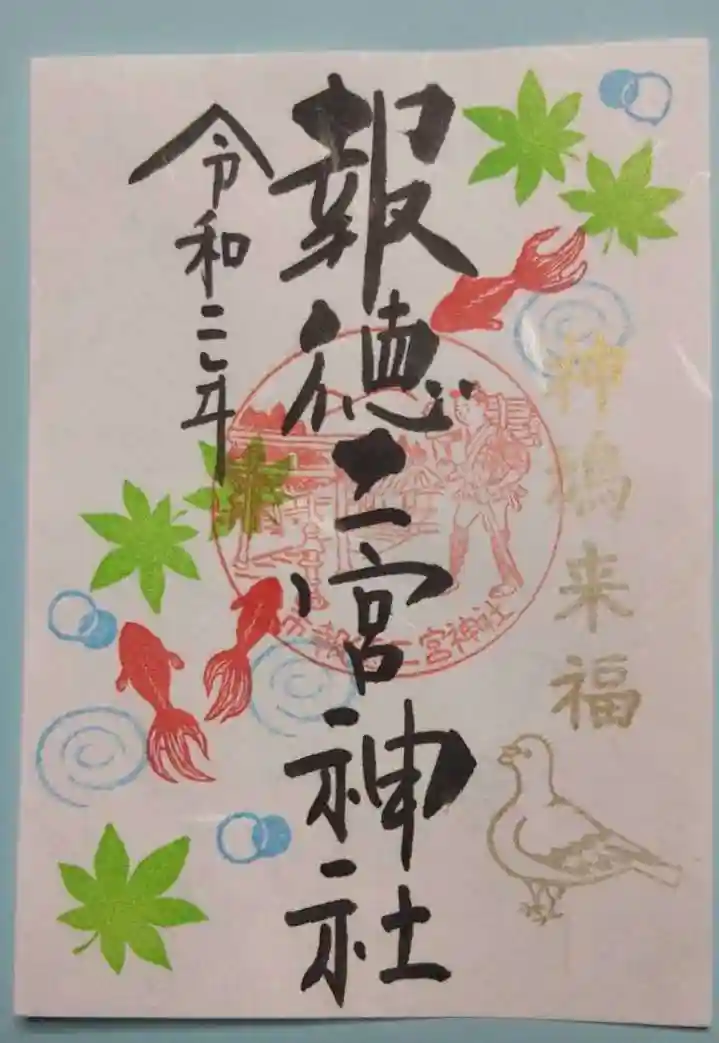 神鳩来福
報徳二宮神社
令和二年
二宮神社